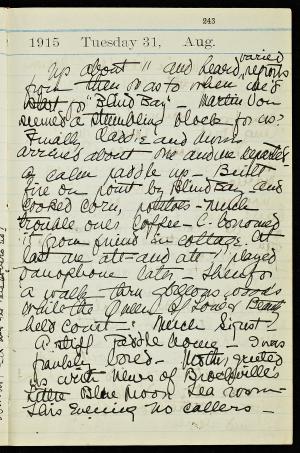 243
1915 Tuesday 31, Aug.
Up about 11 and heard varied reports
from then as to when we'd
start for "Blind Bay" - Martin Von
seemed a stumbling block for us?
Finally Laddie and Norm
arrived about one and we departed
a calm paddle up - Built
fire on point by Blind Bay and
cooked corn, potatoes - much
trouble over coffee - C. borrowed
it from friend in cottage. At
last we ate - and ate I played
panophone later - Then for
a walk thru glorious woods
while the Queen of Love & Beauty
held court - Much
A stiff paddle home - I was
frankly bored - Mother greeted
us with news of Brockville's
little Blue Moon Tea room -
This Evening no callers -